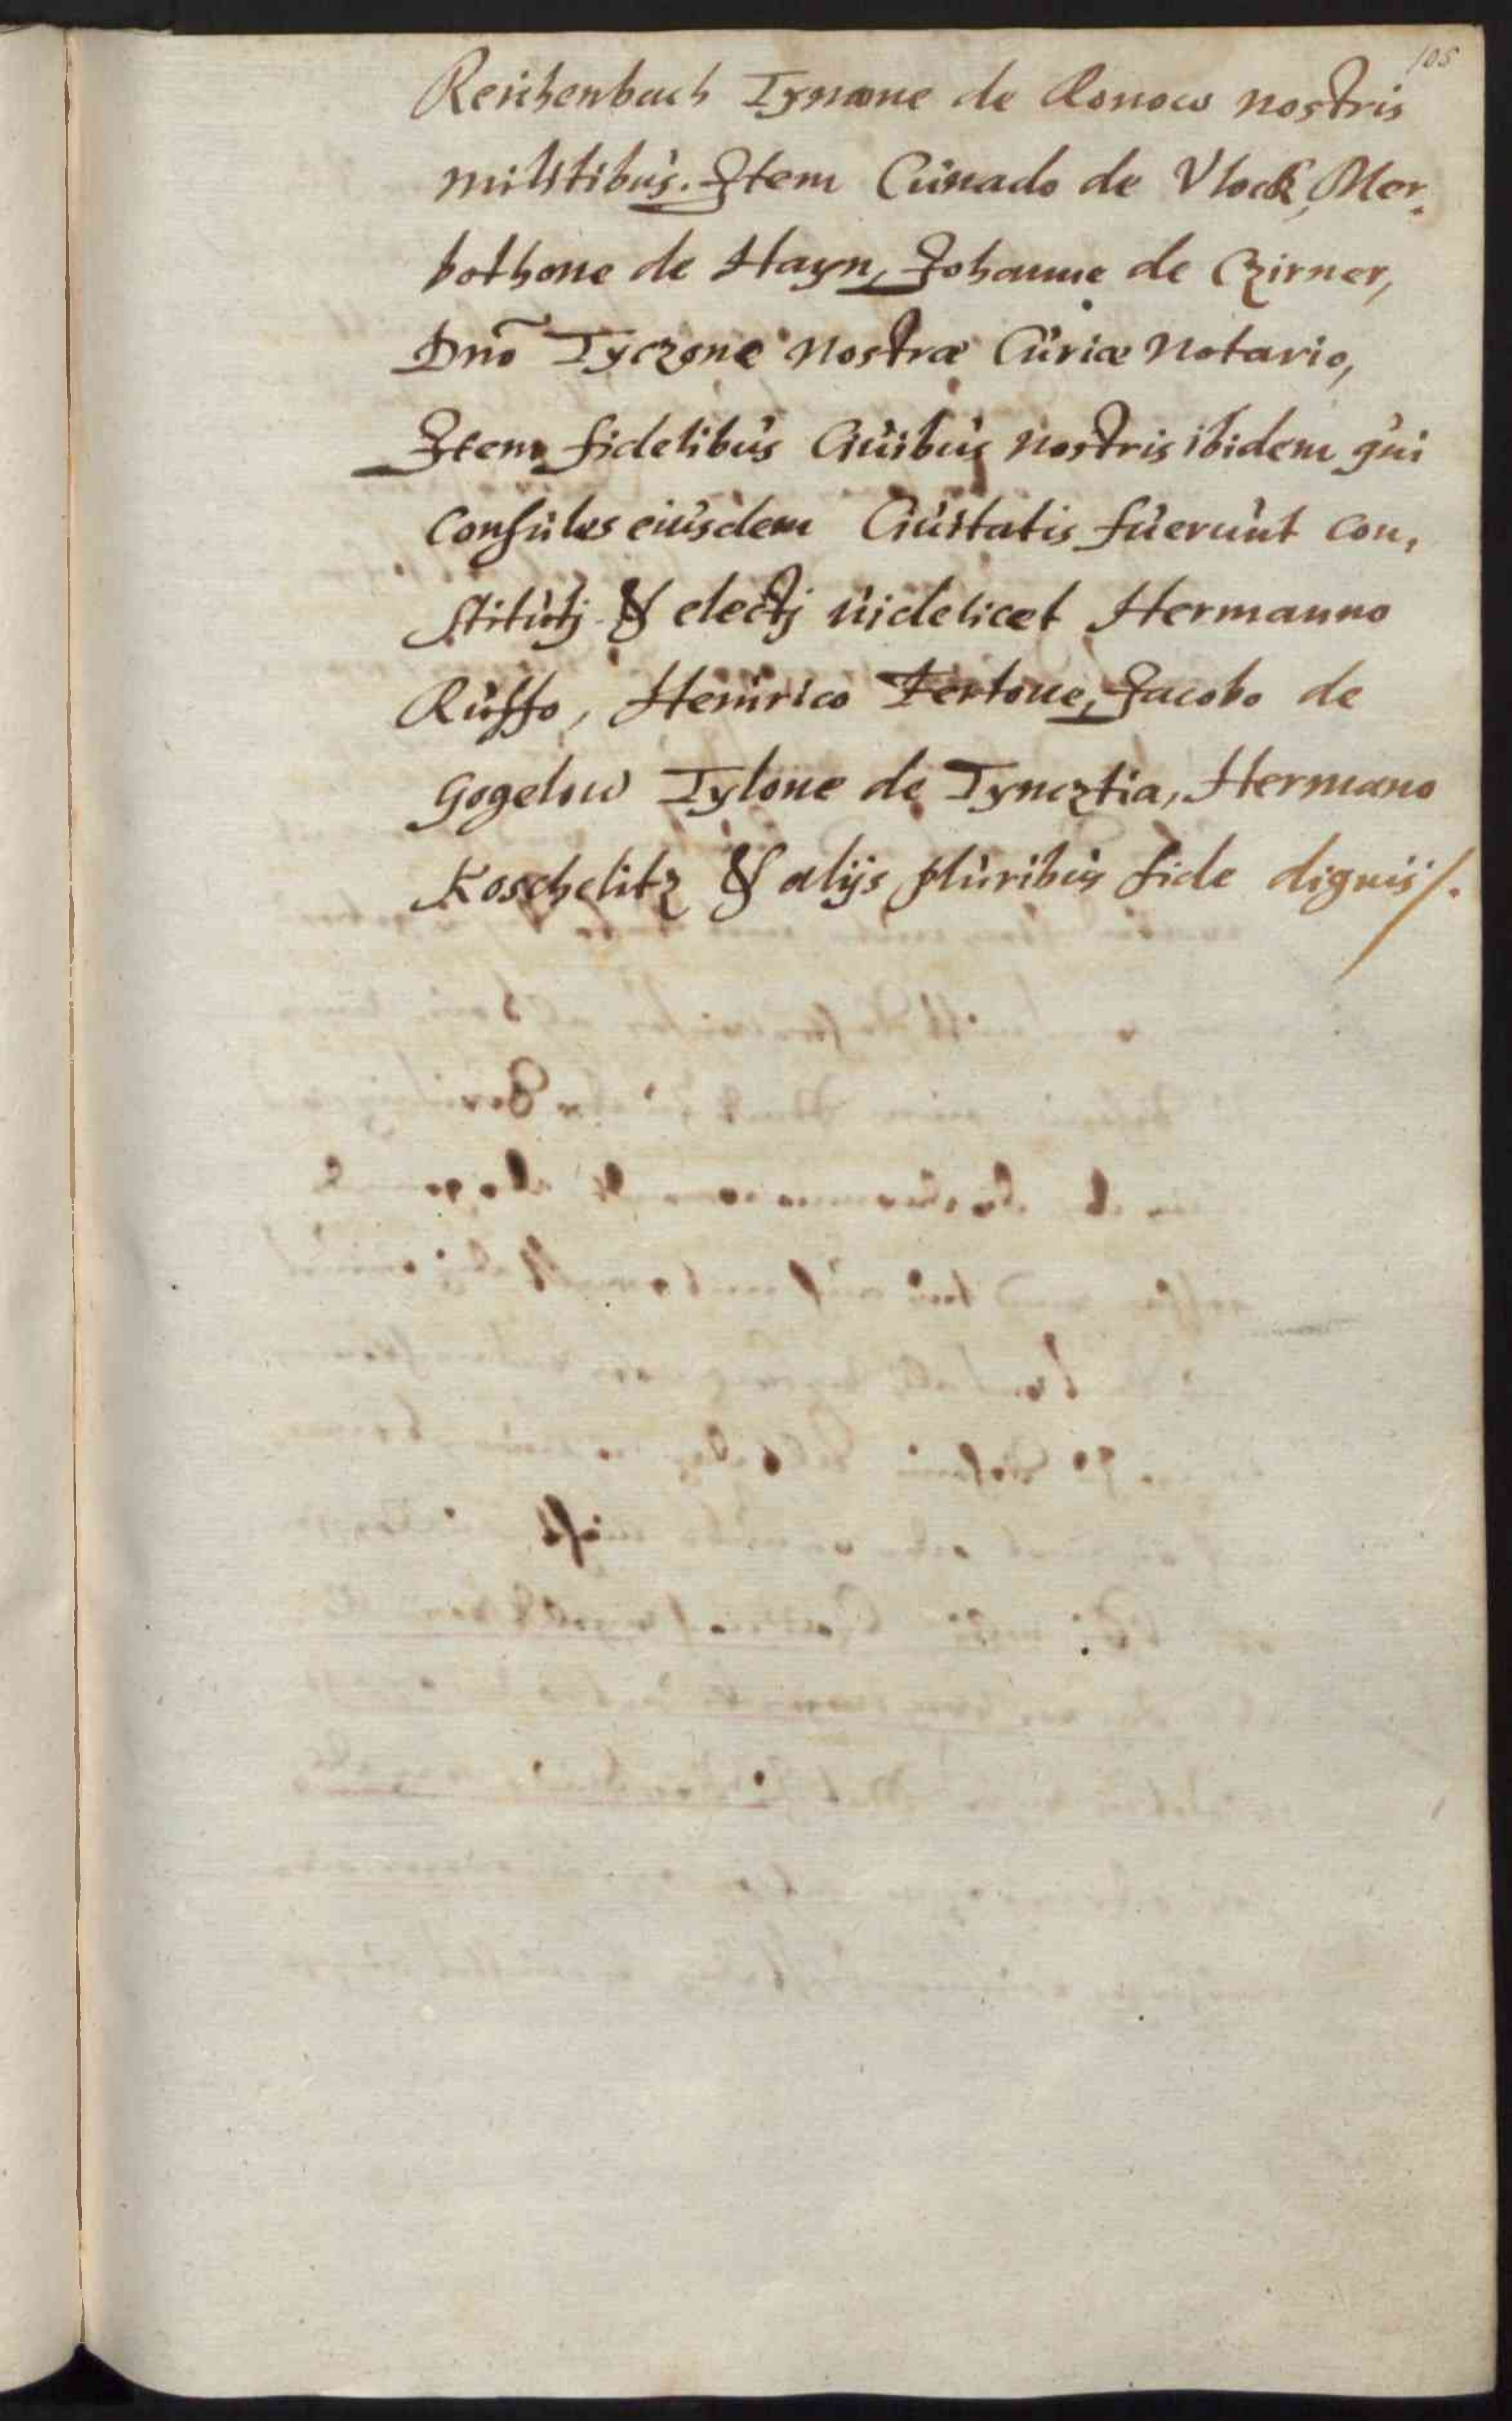 105
Reichenbach Tymone de Ronow nostris
militibus. Item Cunado de Vlock, Mer,
bothone de Hayn, Johanne de Czirner,
Dnõ Tyczone nostræ Curiæ Notario,
Item fidelibus Ciuibus nostris ibidem qui
Consules eiusdem Ciuitatis fuerunt con,
stitutj & electj uidelicet Hermanno
Ruffo, Heinrico Fertone, Jacobo de
Gogelow Tylone de Tyncztia, Hermano
Koschelitz & alijs pluribus fide dignis /.